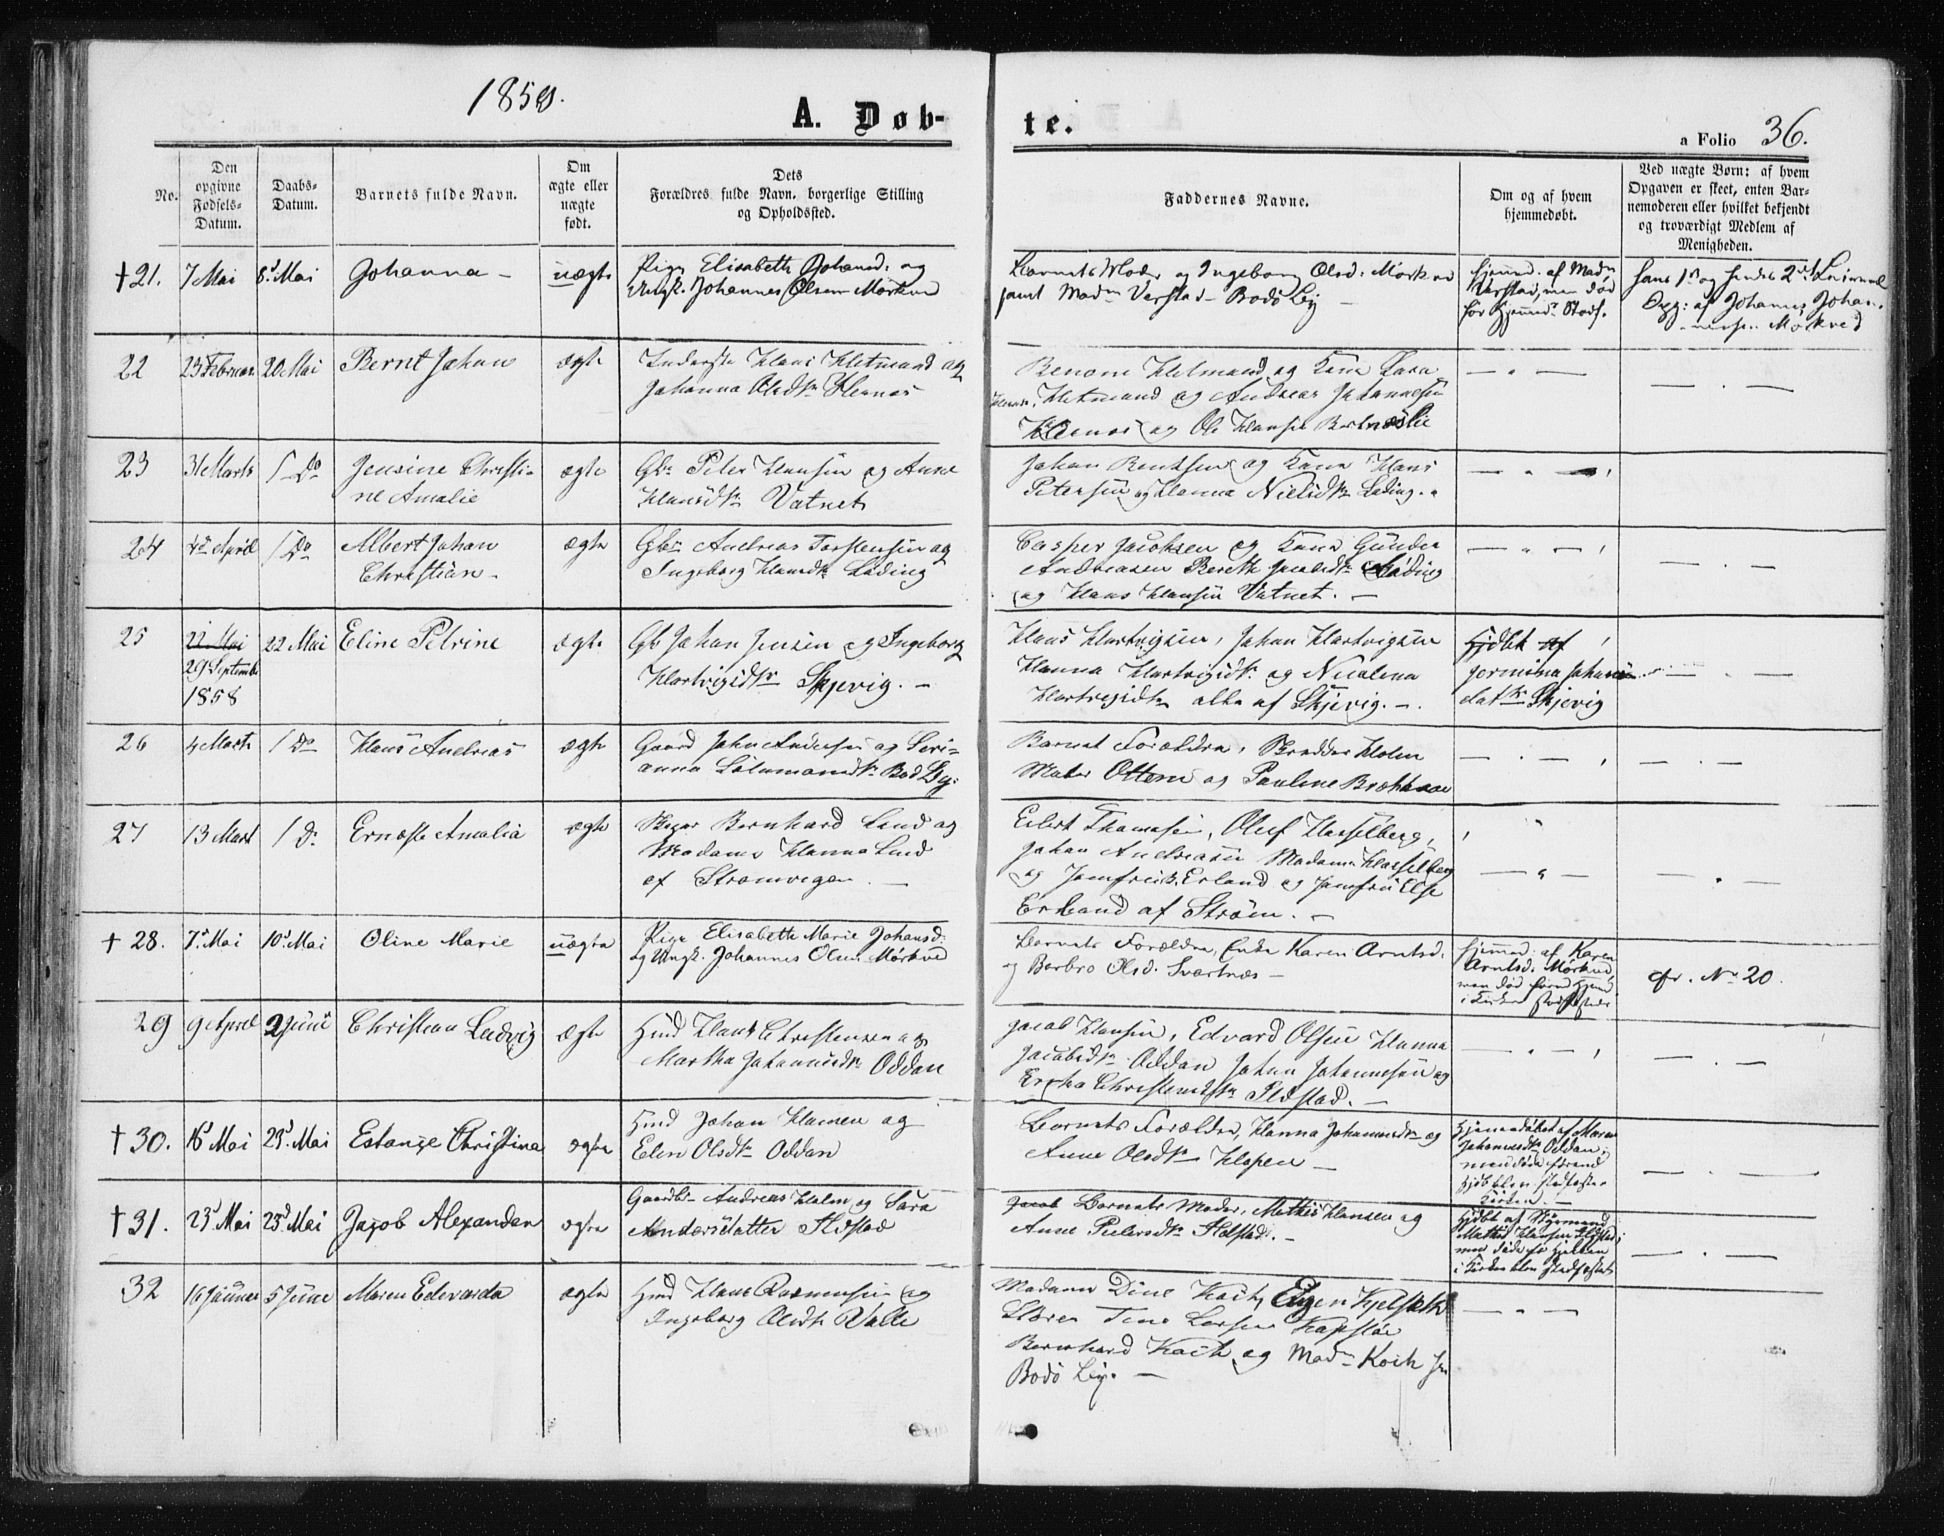 1859.
A. Døb-
te.
a Folio 36.
No.
Den
opgivne
Fødsels-
Datum.
Daabs-
Datum.
Barnets fulde Navn.
Om
ægte eller
uægte
født.
Dets
Forældres fulde Navn, borgerlige Stilling
og Opholdssted.
Faddernes Navne.
Om og af hvem
hjemmedøbt.
Ved uægte Børn: af hvem
Opgaven er skeet, enten Bar-
nemoderen eller hvilket bekjendt
og troværdigt Medlem af
Menigheden.
†21. 7 Mai 8d Mai Johanna – uægte
Pige Elisabeth Johansd: og
Ungk. Johannes Olsen Mørkved
Barnets Moder og Ingeborg Olsd: Mørkved
samt Madm Verstad Bodø Bÿ –
hjemmed. af Madm
Verstad, men død
før Hjemmed. Stadf.
hans 1st og hendes 2det Leiermaal
Opg: af Johannes Johan-
ness. Mørkved
22 23 Februar 20 Mai Bernt Johan ægte
Inderste Hans Hetmand og
Johanna Olsdtr Hernes
Benoni Hetmand og Kone Sara
Hetmand og Andreas Johannesen
Hernes og Ole Hansen Bertneslie
23 31 Marts / Do Jensine Christi-
ne Amalie ægte
Gbr Peter Hansen og Anne
Hansdtr Vatnet
Johan Bentsen og Kone Hans
Petersen og Hanna Nielsdtr Løding.
24 4de April / Do Albert Johan
Christian – ægte
Gbr Andreas Torstensen og
Ingeborg Hansdtr Løding
Casper Jacobsen og Kone Gunder
Andreasen Bereth Jacobsdtr Løding
og Hans Hansen Vatnet. –
25 22 Mai
29 September
1858
22 Mai Eline Petrine ægte
Gbr Johan Jensen og Ingeborg
Hartvigsdtr Skjevig. –
Hans Hartvigsen, Johan Hartvigsen
Hanna Hartvigsdtr og Nicoline
Hartvigsdtr alle af Skjevig. –
Hjdbt af
Jormina Johannes-
datter Skjevig
26 4 Marts / Do Hans Andreas ægte
Gaard John Andersen og Seri-
anna Salamonsdtr Bodø Bÿ.
Barnets Forældre, Skrædder Holm
Mades Ottem og Pauline Brækkan
27 13 Mart / Do Ernæste Amalia ægte
Skipper Bernhard Lund og
Madame Hanna Lund
af Strømvegen. –
Eilert Thomasen, Oluf Hasselberg,
Johan Andreasen Madame Hasselberg
og Jomfru B. Erland og Jomfru Else
Erland af Strøm. –
† 28. 7d Mai 10d Mai Oline Marie uægte
Pige Elisabeth Marie Johansd:
og Ungk. Johannes Olsen Mørkved
Barnets Forældre, Enke Karen Arntsd.
og Barbro Olsd. Svartnæs –
hjemmed: af Karen
Arntsd. Mørkved,
men død
cfr. No 20.
29 9 April 2 Juni Christian Ludvig ægte
Hmd Hans Christensen og
Martha Johannesdtr Oddan
Jacob Hansen, Edvard Olsen Hanna
Jacobsdtr Oddan Johan Johannesen og
Christensdtr Ilstad. –
†30. 16d Mai 29d Mai Estange Christina ægte
Hmd Johan Hansen og
Elen Olsdtr Oddan
Barnets Forældre, Hanna Johannesdtr og
Anne Olsdtr Hopen –
Hjemmedøbt af Maren
Johannesdtr Oddan,
men døde førend
Hjdb. blev stadfæstet
Kirken. –
†31. 23d Mai 25d Mai Jacob Alexander ægte
Gaardbr Andreas Holm og Sara
Andersdatter Ilstad
Jacob Barnets Moder, Mathis Hansen og
Anne Pedersdtr Ilstad. –
Hjdbt af Styrmand
Mathis Hansen Ilstad,
men døde før Hjdben
i Kirken blev stadfæstet
32 16 Januar 5 Juni Maren Edevarda ægte
Hmd Hans Rasmussen og
Ingeborg Olsdtr Valle
Madame Dine Koch, Eigen Kjelseth
Støren Tine Larsen Kapstøe
Bernhard Koch og Madm Koch
Bodø Bÿ. –